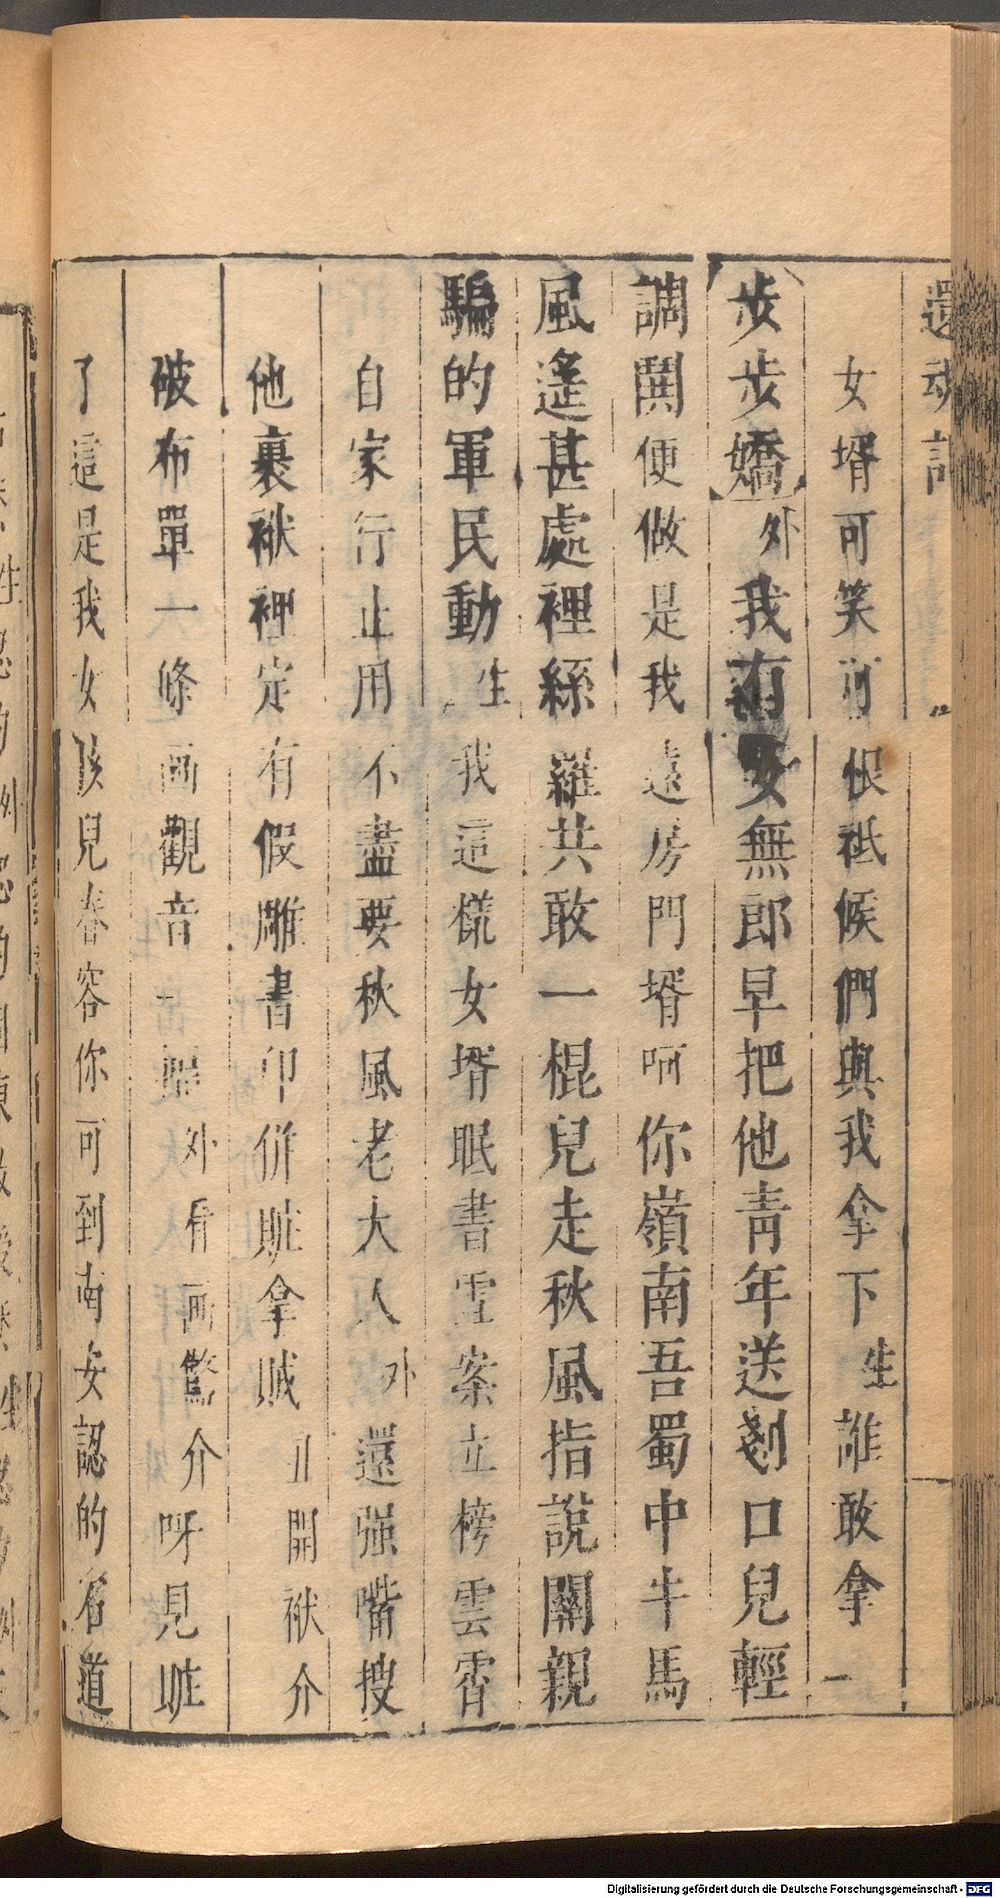 還魂記
女壻可笑可恨祗候們與我拿下生誰敢拿
步步嬌外我有女無郎早把他青年送剗口兒輕
調鬨便做是我遠房門壻呵你嶺南吾蜀中牛馬
風遙甚處裡絲蘿共敢一棍兒走秋風指說關親
騙的軍民動生我這樣女壻眠書雪案立榜雲霄
自家行止用不盡要秋風老大人外還强嘴搜
他裹袱裡定有假雕書印併贓拿賊 開袱介
破布單一條画觀音一幅外看画驚介呀見贓
了這是我女孩兒春容你可到南安認的石道
Digitalisierung gefördert durch die Deutsche Forschungsgemeinschaft - DFG